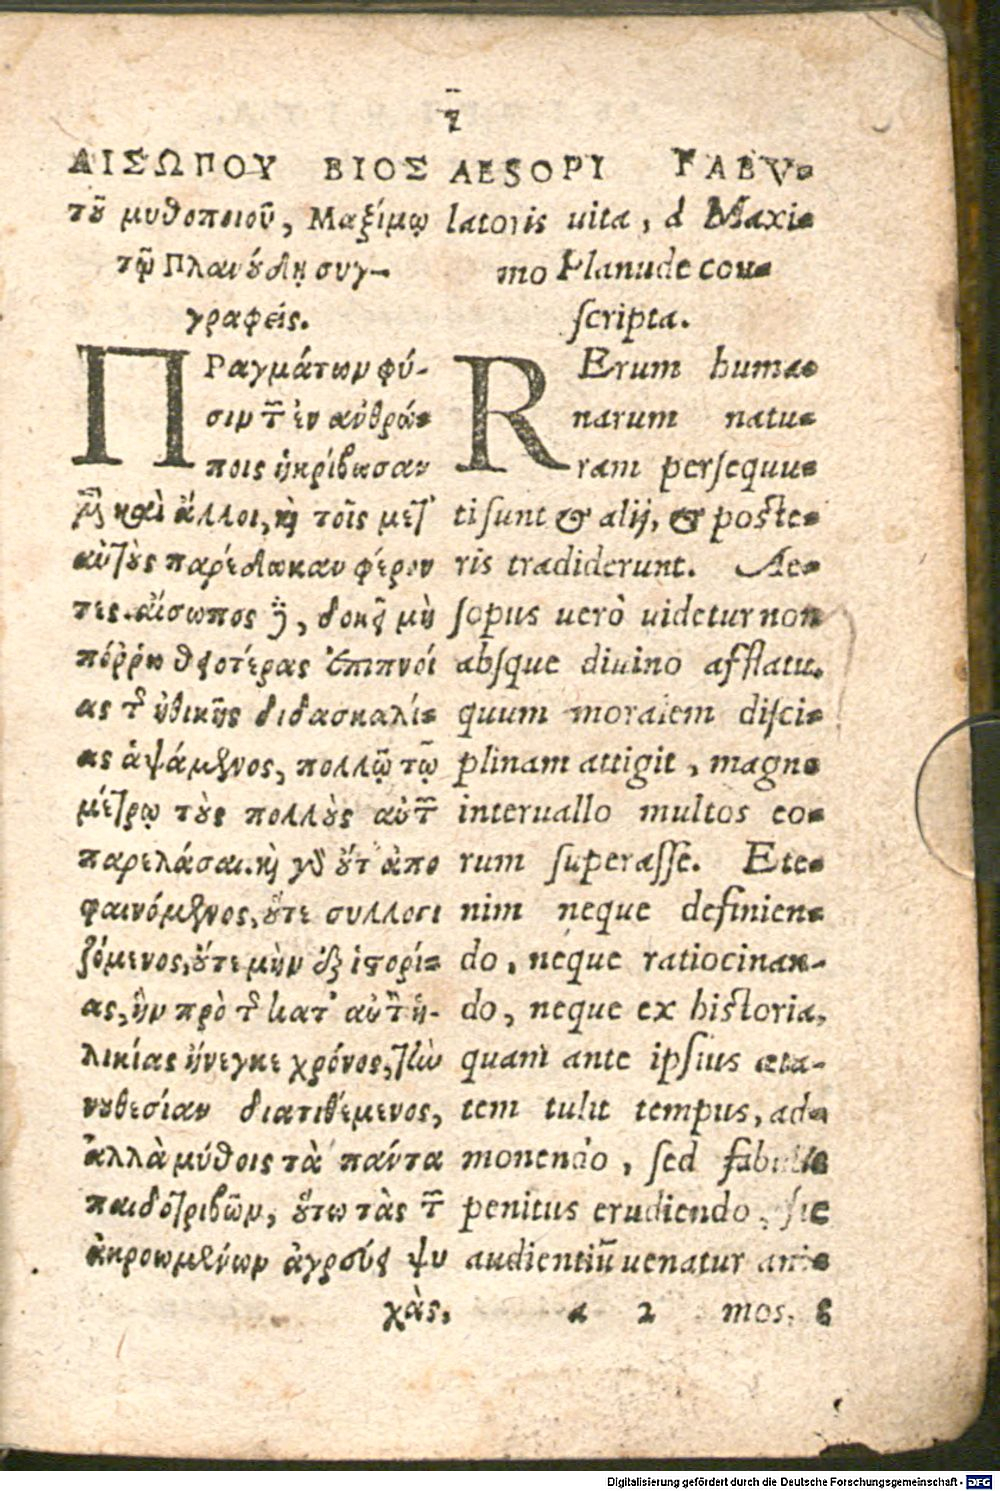 ΑΙΣΩΠΟΥ ΒΙΟΣ
τοῦ μυθοποιοῦ, Μαξίμῳ
τῷ Πλανούδῃ συγ-
γραφείς.
ΠΡαγμάτων φύ-
σιν τ̃ ἐν ἀνθρώ-
ποις ἠκρίβωσαν
μ̃ καὶ ἄλλοι, καὶ τοῖς μετ'
αὐτοὺς παρέδωκαν φέρον
τες. αἴσωπος δὲ, δοκεῖ μὴ
πόῤῥω θειοτέρας ἐπιπνοί
ας τ̃ ἠθικῆς διδασκαλί-
ας ἁψάμενος, πολλῷ τῷ
μέτρῳ τοὺς πολλοὺς αὐτ̃
παρελάσαι. καὶ γὰρ οὔτ' ἀπο
φαινόμενος, οὔτε συλλογι
ζόμενος, οὔτε μὴν ἐξ ἱστορί-
ας, ἣν πρὸ τ̃ κατ' αὐτ̃ ἡ-
λικίας ἤνεγκε χρόνος, τὴν
νουθεσίαν διατιθέμενος,
ἀλλὰ μύθοις τὰ πάντα
παιδοτριβῶν, οὕτω τὰς τ̃
ἀκροωμένων ἀγρεύει ψυ
χὰς,
AESOPI FABV-
latoris uita, à Maxi-
mo Planude con-
scripta.
RErum huma-
narum natu-
ram persequu-
ti sunt & alij, & poste-
ris tradiderunt. Ae-
sopus uerò uidetur non
absque diuino afflatu,
quum moralem disci-
plinam attigit, magno
interuallo multos eo-
rum superasse. Ete-
nim neque definien-
do, neque ratiocinan-
do, neque ex historia,
quam ante ipsius æta-
tem tulit tempus, ad-
monendo, sed fabulis
penitus erudiendo, sic
audientiũ uenatur ani-
a 2 mos,
Digitalisierung gefördert durch die Deutsche Forschungsgemeinschaft - DFG